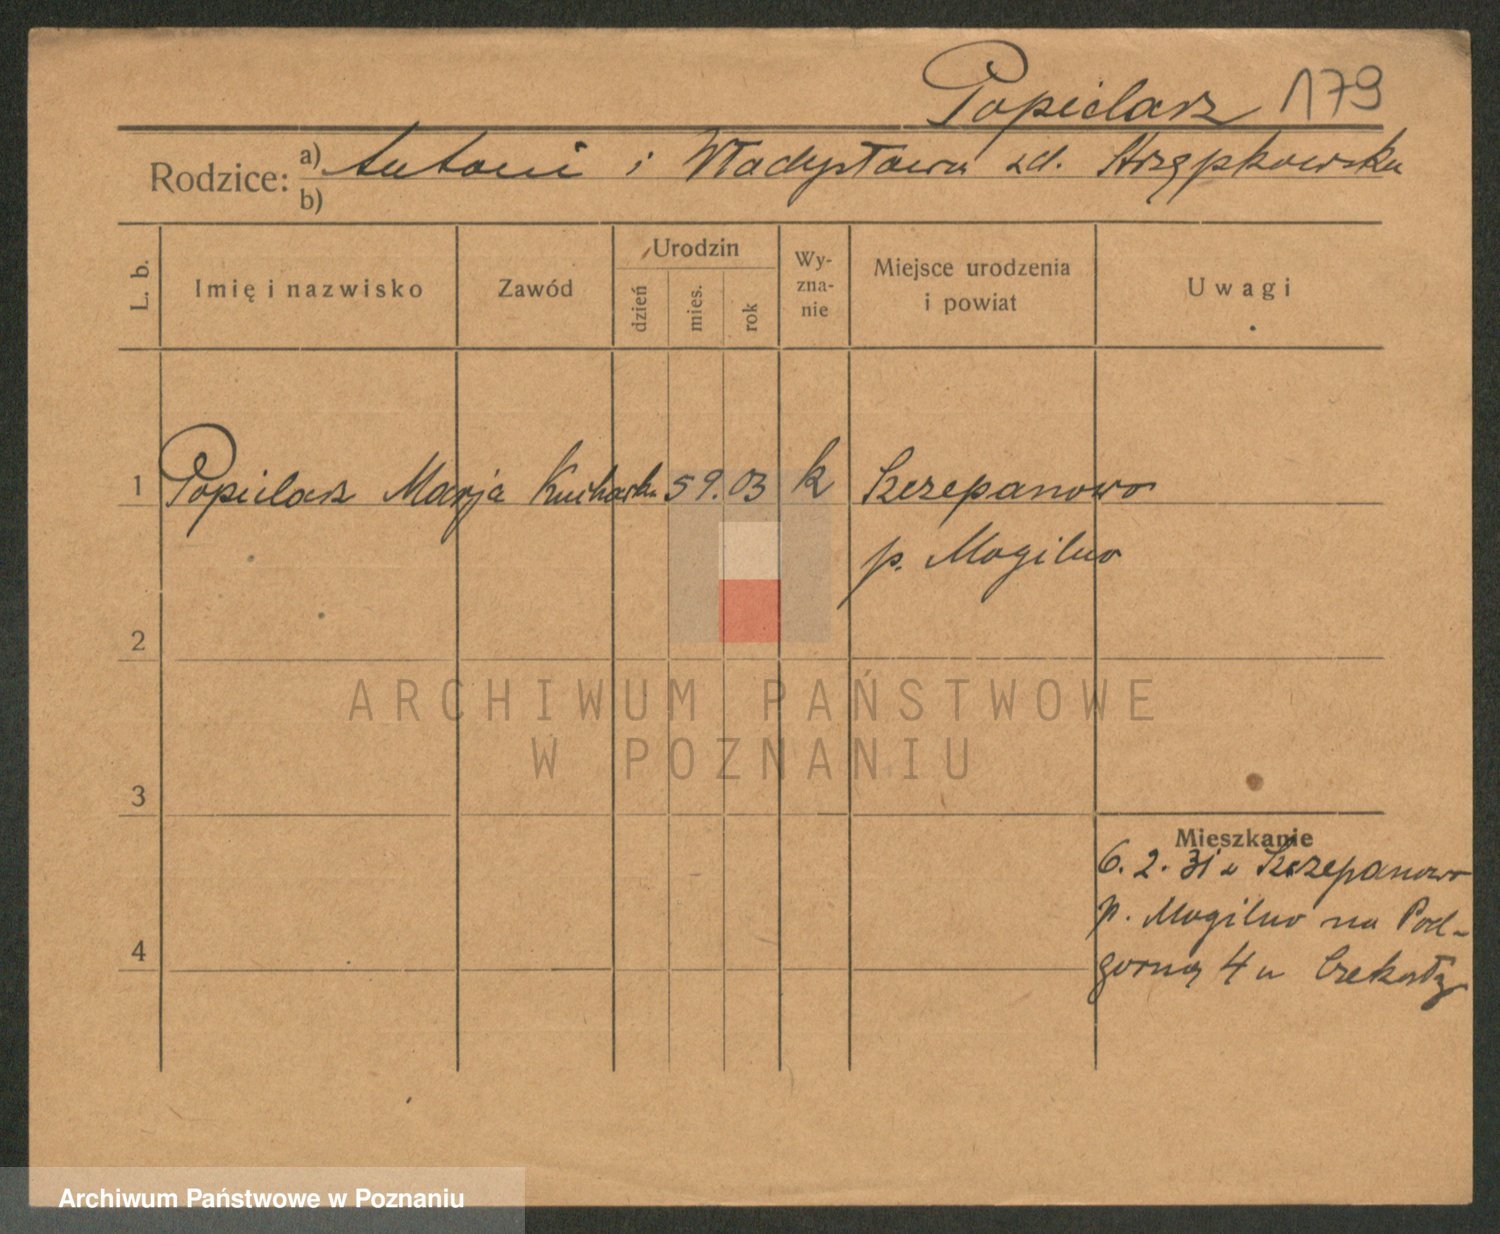 Popielarz 179
Rodzice: a) Antoni i Władysława zd. Strzępkowska
b)
L. b.
Imię i nazwisko
Zawód
Urodzin
dzień
mies.
rok
Wy-
zna-
nie
Miejsce urodzenia
i powiat
Uwagi
1 Popielarz Marja Kucharka 5 9. 03 k Szczepanowo
p. Mogilno
2
ARCHIWUM PAŃSTWOWE
W POZNANIU
3
Mieszkanie
6. 2. 31 z Szczepanowo
p. Mogilno na Pod-
4
górną 4 u
Archiwum Państwowe w Poznaniu